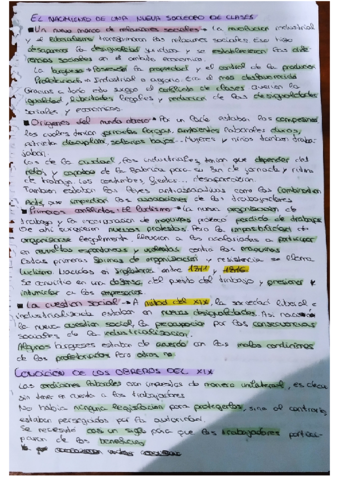 EL NACIMIENTO DE UNA NUEVA SOCIEDAD DE CLASES
■ Un nuevo marco de relaciones sociales → La revolución industrial
y el liberalismo transforman las relaciones sociales. Eso hizo
desaparecer la desigualdad jurídica y se establecieron las dife
rencias sociales en el ámbito económico.
La burguesía poseía la propiedad y el control de la producción
Proletariado → Industrial o agrario era el más desfavorecido
Gracias a todo esto surgió el conflicto de clases querían la
igualdad, libertades legales y reducción de las desigualdades
sociales y económicas.
■ Orígenes del mundo obrero → Por un lado estaban los campesinos
los cuales tenían jornadas largas, ambientes laborales duros,
estricta disciplina, salarios bajos... Mujeres y niños también traba-
jaban.
Los de la ciudad, los industriales tenían que depender del
reloj y capataz de la fábrica para su fin de jornada y ritmo
de trabajo. Las costumbres, fiestas... desaparecían
También estaban las leyes antiasociativas como las Combination
Acts, que impedían las asociaciones de los trabajadores
■ Primeros conflictos: el ludismo → La nueva organización de
trabajo y la incorporación de máquinas provocó pérdida de trabajo
De ahí surgieron nuevas protestas. Para la imposibilidad de
organizarse legalmente llevaron a los asalariados a participar
en revueltas espontáneas y violentas contra las máquinas
Estas primeras formas de organización y resistencia se llama
Ludismo. Iniciadas en Inglaterra entre 1811 y 1816.
Se convirtió en una defensa del puesto del trabajo y presionar e
intimidar a los empresarios.
■ La cuestión social → A mitad del XIX, la sociedad liberal e
industrializada estaban en nuevas desigualdades. Así nace
la nueva cuestión social, la preocupación por las consecuencias
sociales de la industrialización.
Algunos burgueses estaban de acuerdo con las malas condiciones
de los proletariados pero otros no.
CONDICIÓN DE LOS OBREROS DEL XIX
Las condiciones laborales eran impuestas de manera unilateral, es decir
sin tener en cuenta a los trabajadores
No había ninguna legislación para protegerlos, sino al contrario
estaban perseguidos por la autoridad.
Se necesitó casi un siglo para que los trabajadores partici-
paran de los beneficios